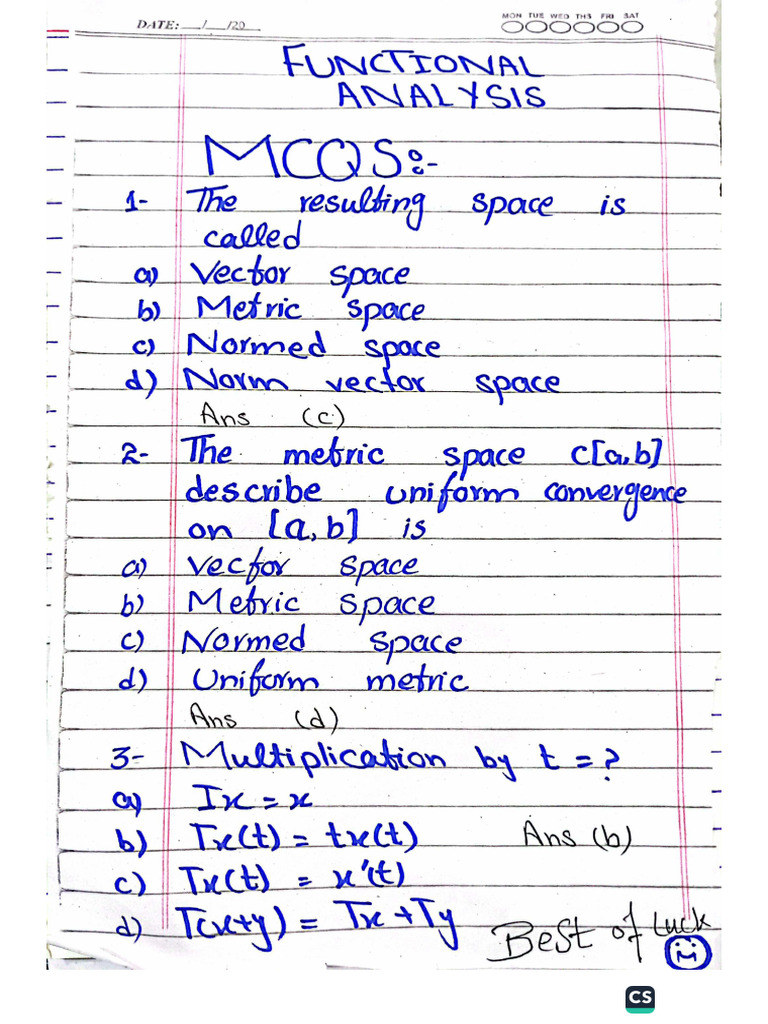 DATE: __/__/20__
MON TUE WED THS FRI SAT
FUNCTIONAL
ANALYSIS
MCQS:-
1- The resulting space is
called
a) Vector space
b) Metric space
c) Normed space
d) Norm vector space
Ans (c)
2- The metric space c[a,b]
describe uniform convergence
on [a,b] is
a) vector space
b) Metric space
c) Normed space
d) Uniform metric
Ans (d)
3- Multiplication by t = ?
a) Ix = x
b) Tx(t) = tx(t) Ans (b)
c) Tx(t) = x'(t)
d) T(x+y) = Tx + Ty
Best of Luck
CS